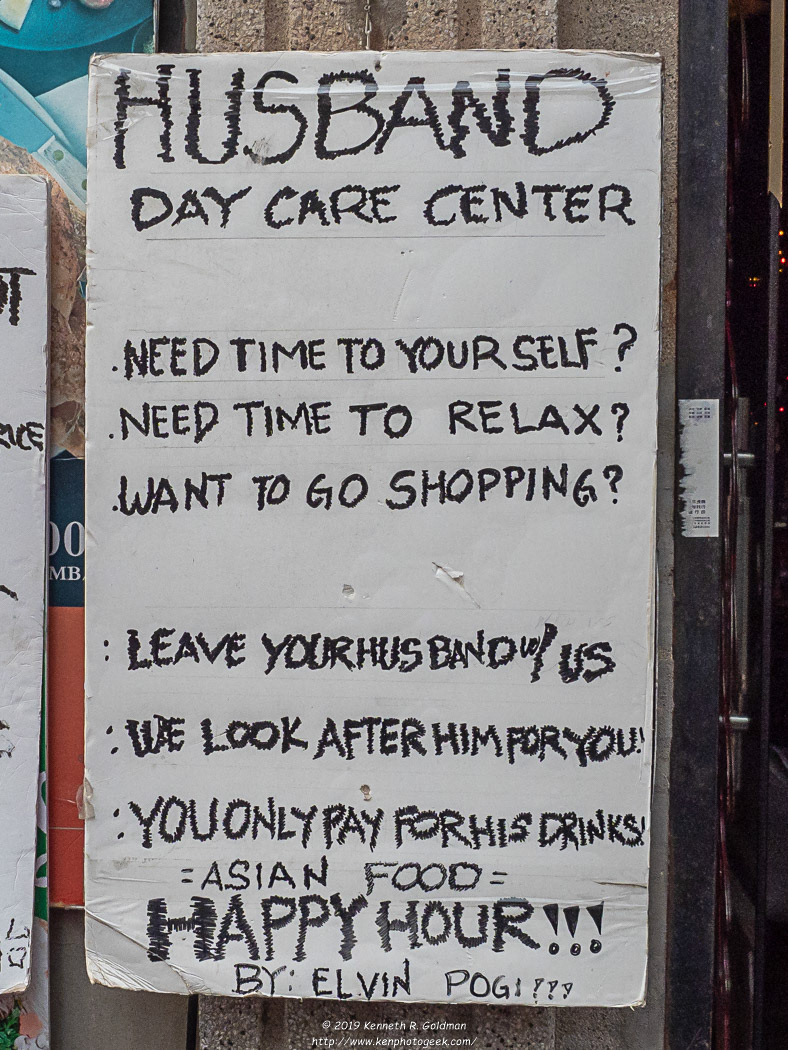 HUSBAND
DAY CARE CENTER
.NEED TIME TO YOURSELF?
.NEED TIME TO RELAX?
.WANT TO GO SHOPPING?
: LEAVE YOUR HUSBAND W/ US
: WE LOOK AFTER HIM FOR YOU!
: YOU ONLY PAY FOR HIS DRINKS!
=ASIAN FOOD=
HAPPY HOUR!!!
BY: ELVIN POGI???
© 2019 Kenneth R. Goldman
http://www.kenphotogeek.com/